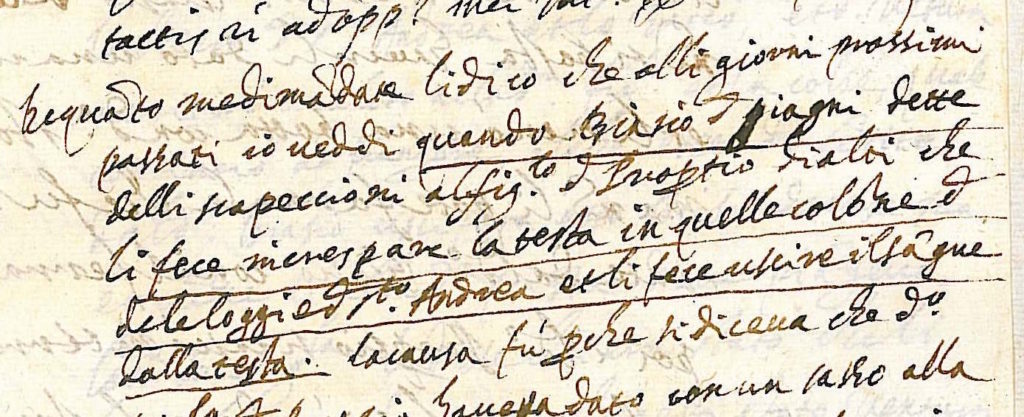 tactis ri ad opp.
Re quãto me dimãdate li dico che alli giorni prossimi
passati io veddi quando Biasio d piagni dette
delli scapeccioni al fig.lo d Propertio dialti che
li fece increspare la testa in quelle colõne d
dele loggie d s.to Andrea et li fece uscire il sãgue
dalla testa. la causa fù pche si diceva che d.o
haveva dato con un sasso alla